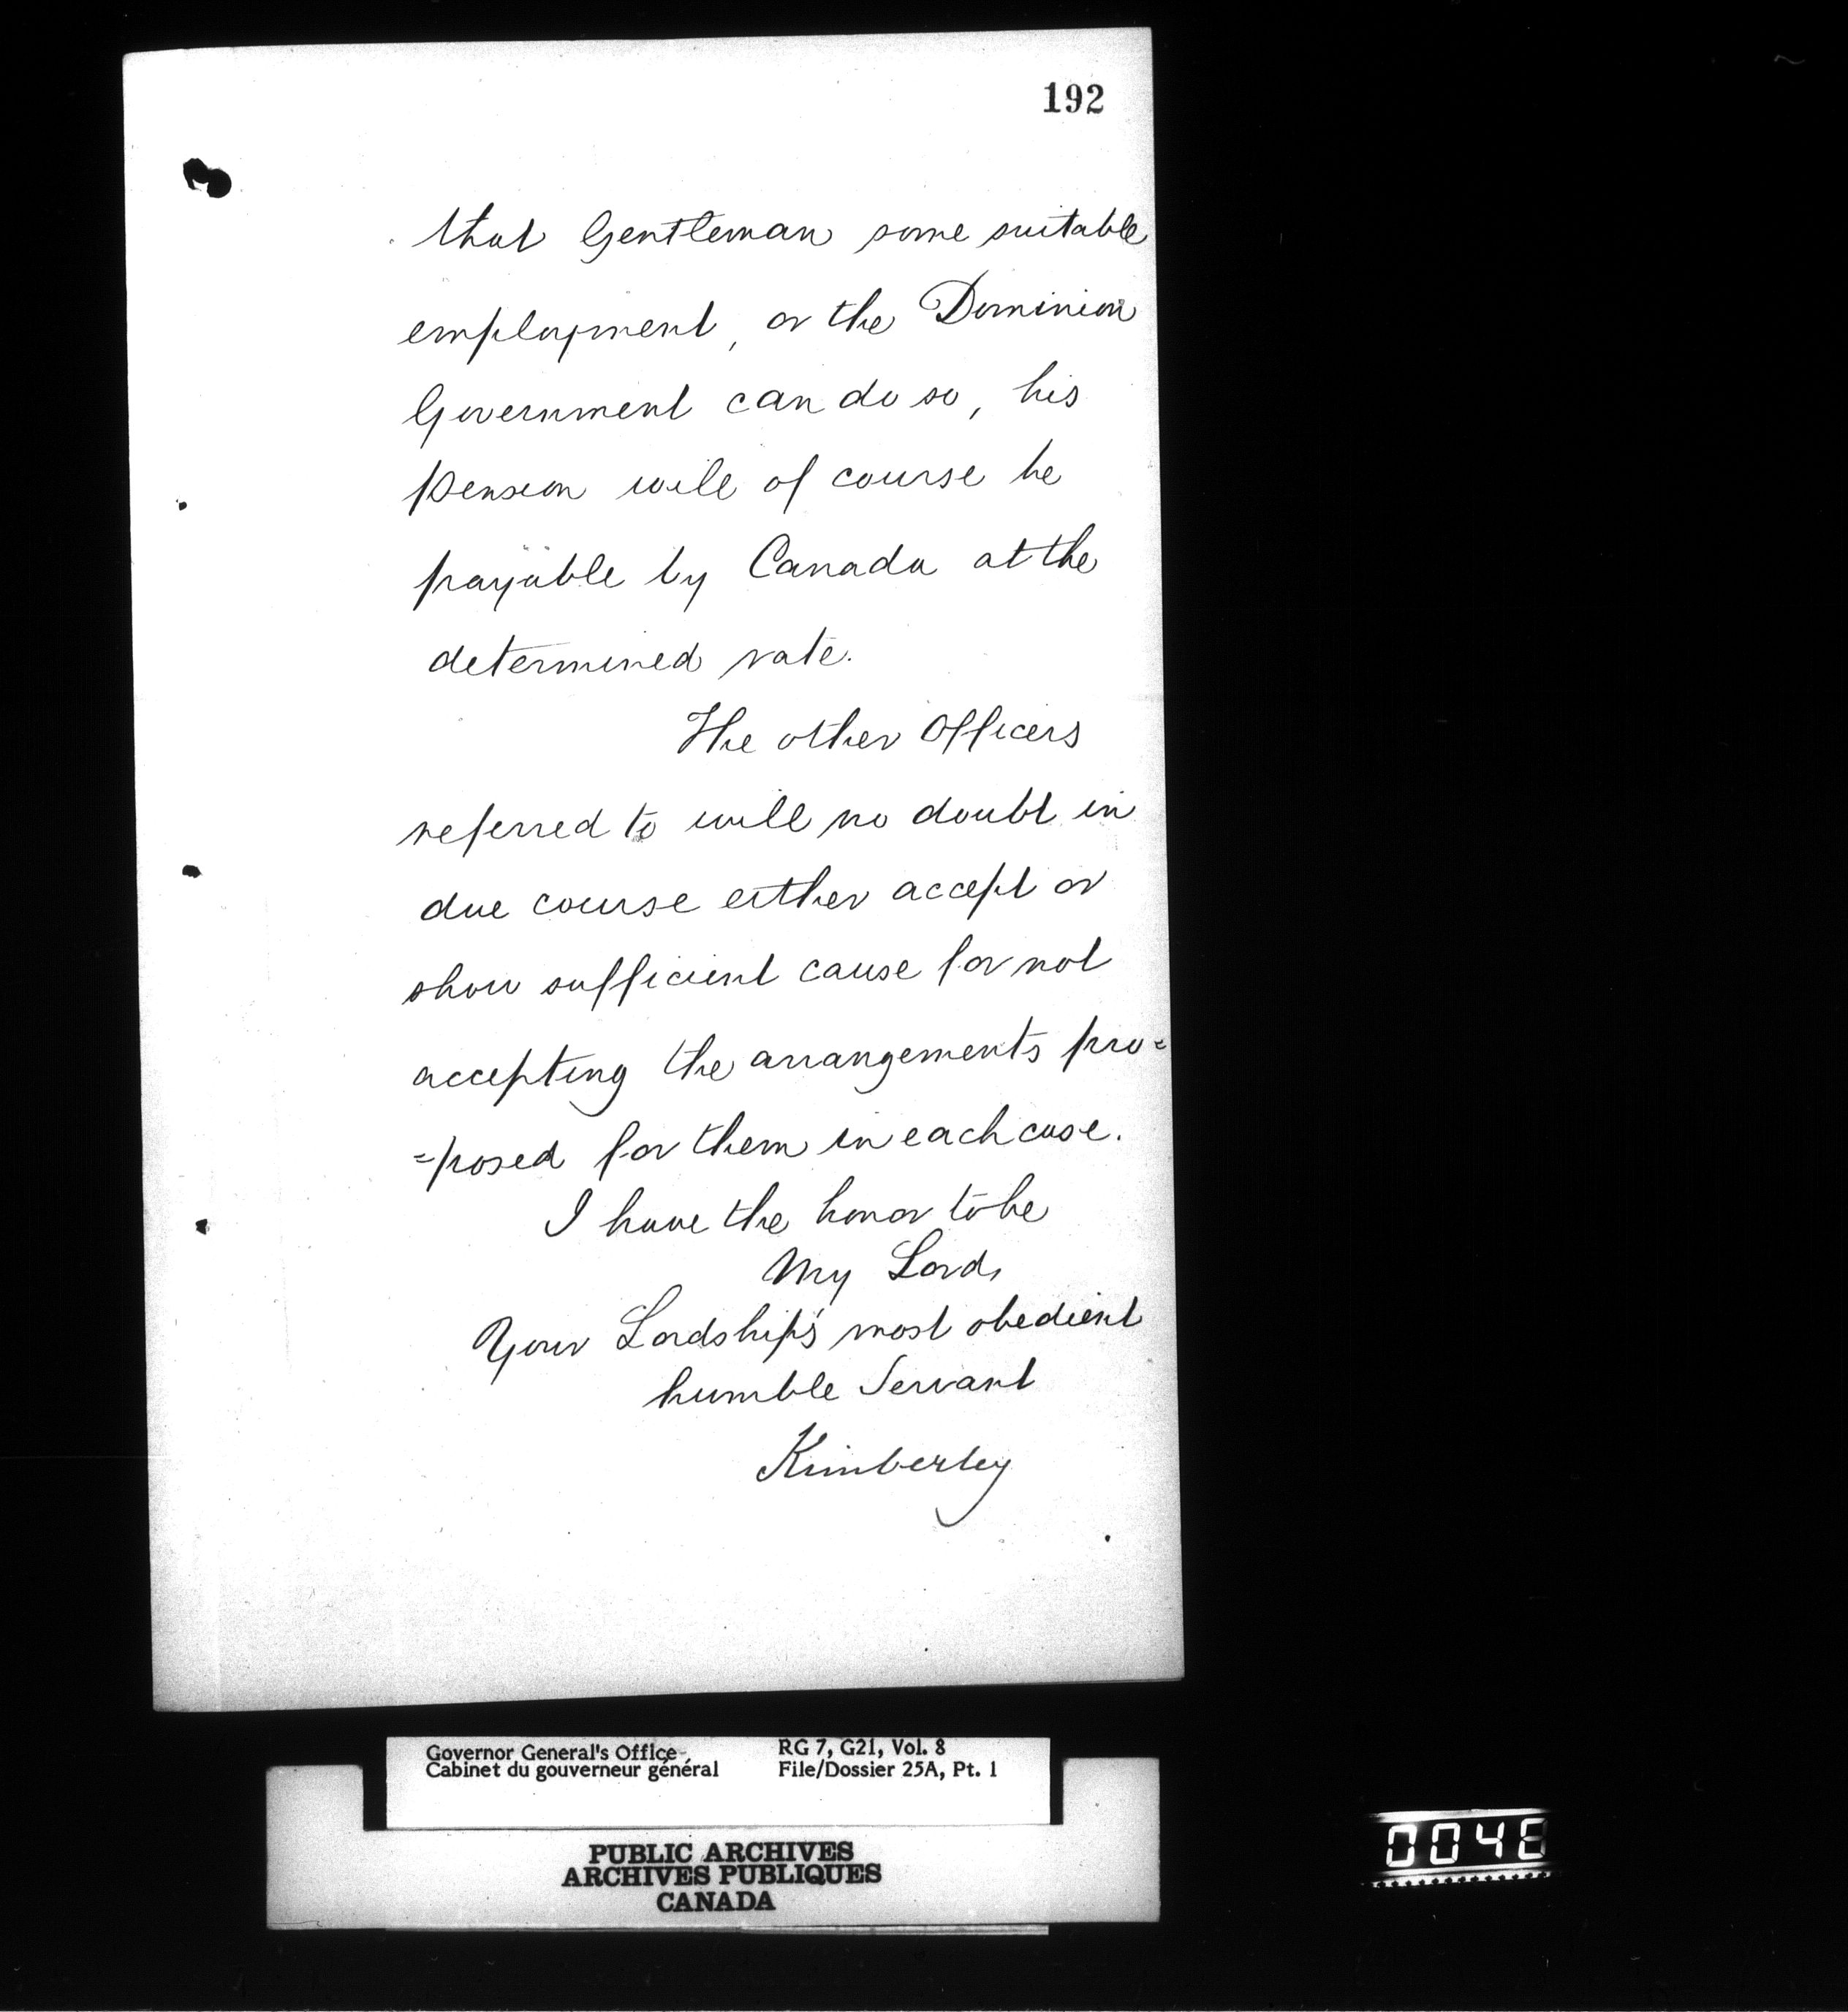 192
that Gentleman some suitable
employment, or the Dominion
Government can do so, his
pension will of course be
payable by Canada at the
determined rate.
The other Officers
referred to will no doubt in
due course either accept or
show sufficient cause for not
accepting the arrangements pro=
=posed for them in each case.
I have the honor to be
My Lord,
Your Lordship's most obedient
humble Servant
Kimberley
Governor General's Office RG 7, G21, Vol. 8
Cabinet du gouverneur général File/Dossier 25A, Pt. 1
PUBLIC ARCHIVES
ARCHIVES PUBLIQUES
CANADA